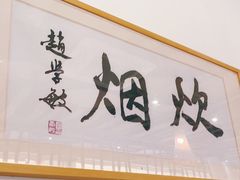 炊烟
趙学敏